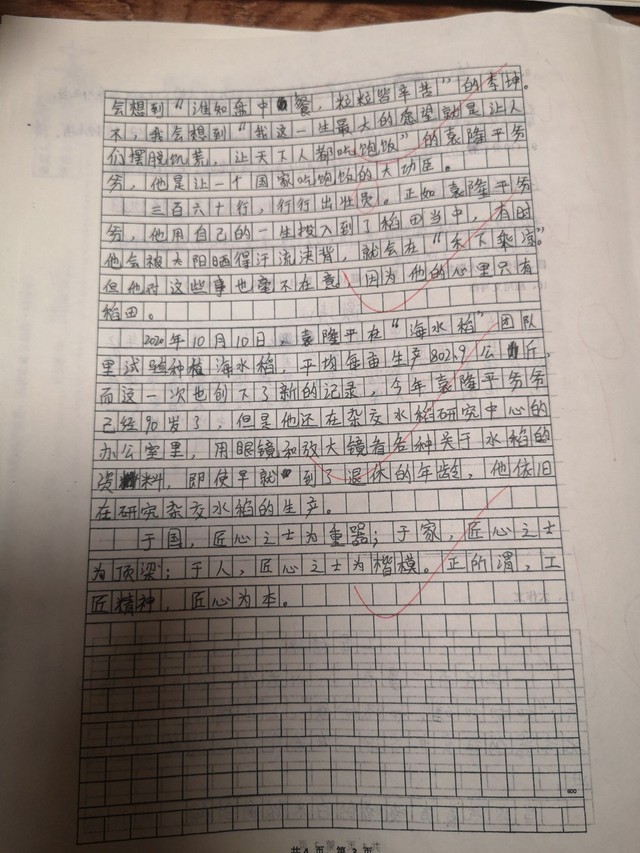 会想到“谁知桌中餐，粒粒皆辛苦”的李坤。
不，我会想到“我这一生最大的愿望就是让人
们摆脱饥荒，让天下人都吃饱饭”的袁隆平爷
爷，他是让一个国家吃饱饭的大功臣。
三百六十行，行行出壮员。正如袁隆平爷
爷，他用自己的一生投入到了稻田当中，有时
他会被大阳晒得汗流浃背，就会在“禾下乘凉”。
但他对这些事也毫不在意，因为他的心里只有
稻田。
2020年10月10日，袁隆平在“海水稻”团队
里试验种植海水稻，平均每亩生产802.9公斤，
而这一次也创下了新的记录，今年袁隆平爷爷
已经90岁了，但是他还在杂交水稻研究中心的
办公室里，用眼镜和放大镜看各种关于水稻的
资料，即使早就到了退休的年龄，他依旧
在研究杂交水稻的生产。
于国，匠心之士为重器；于家，匠心之士
为顶梁；于人，匠心之士为楷模。正所谓，工
匠精神，匠心为本。
800
共4页 第3页